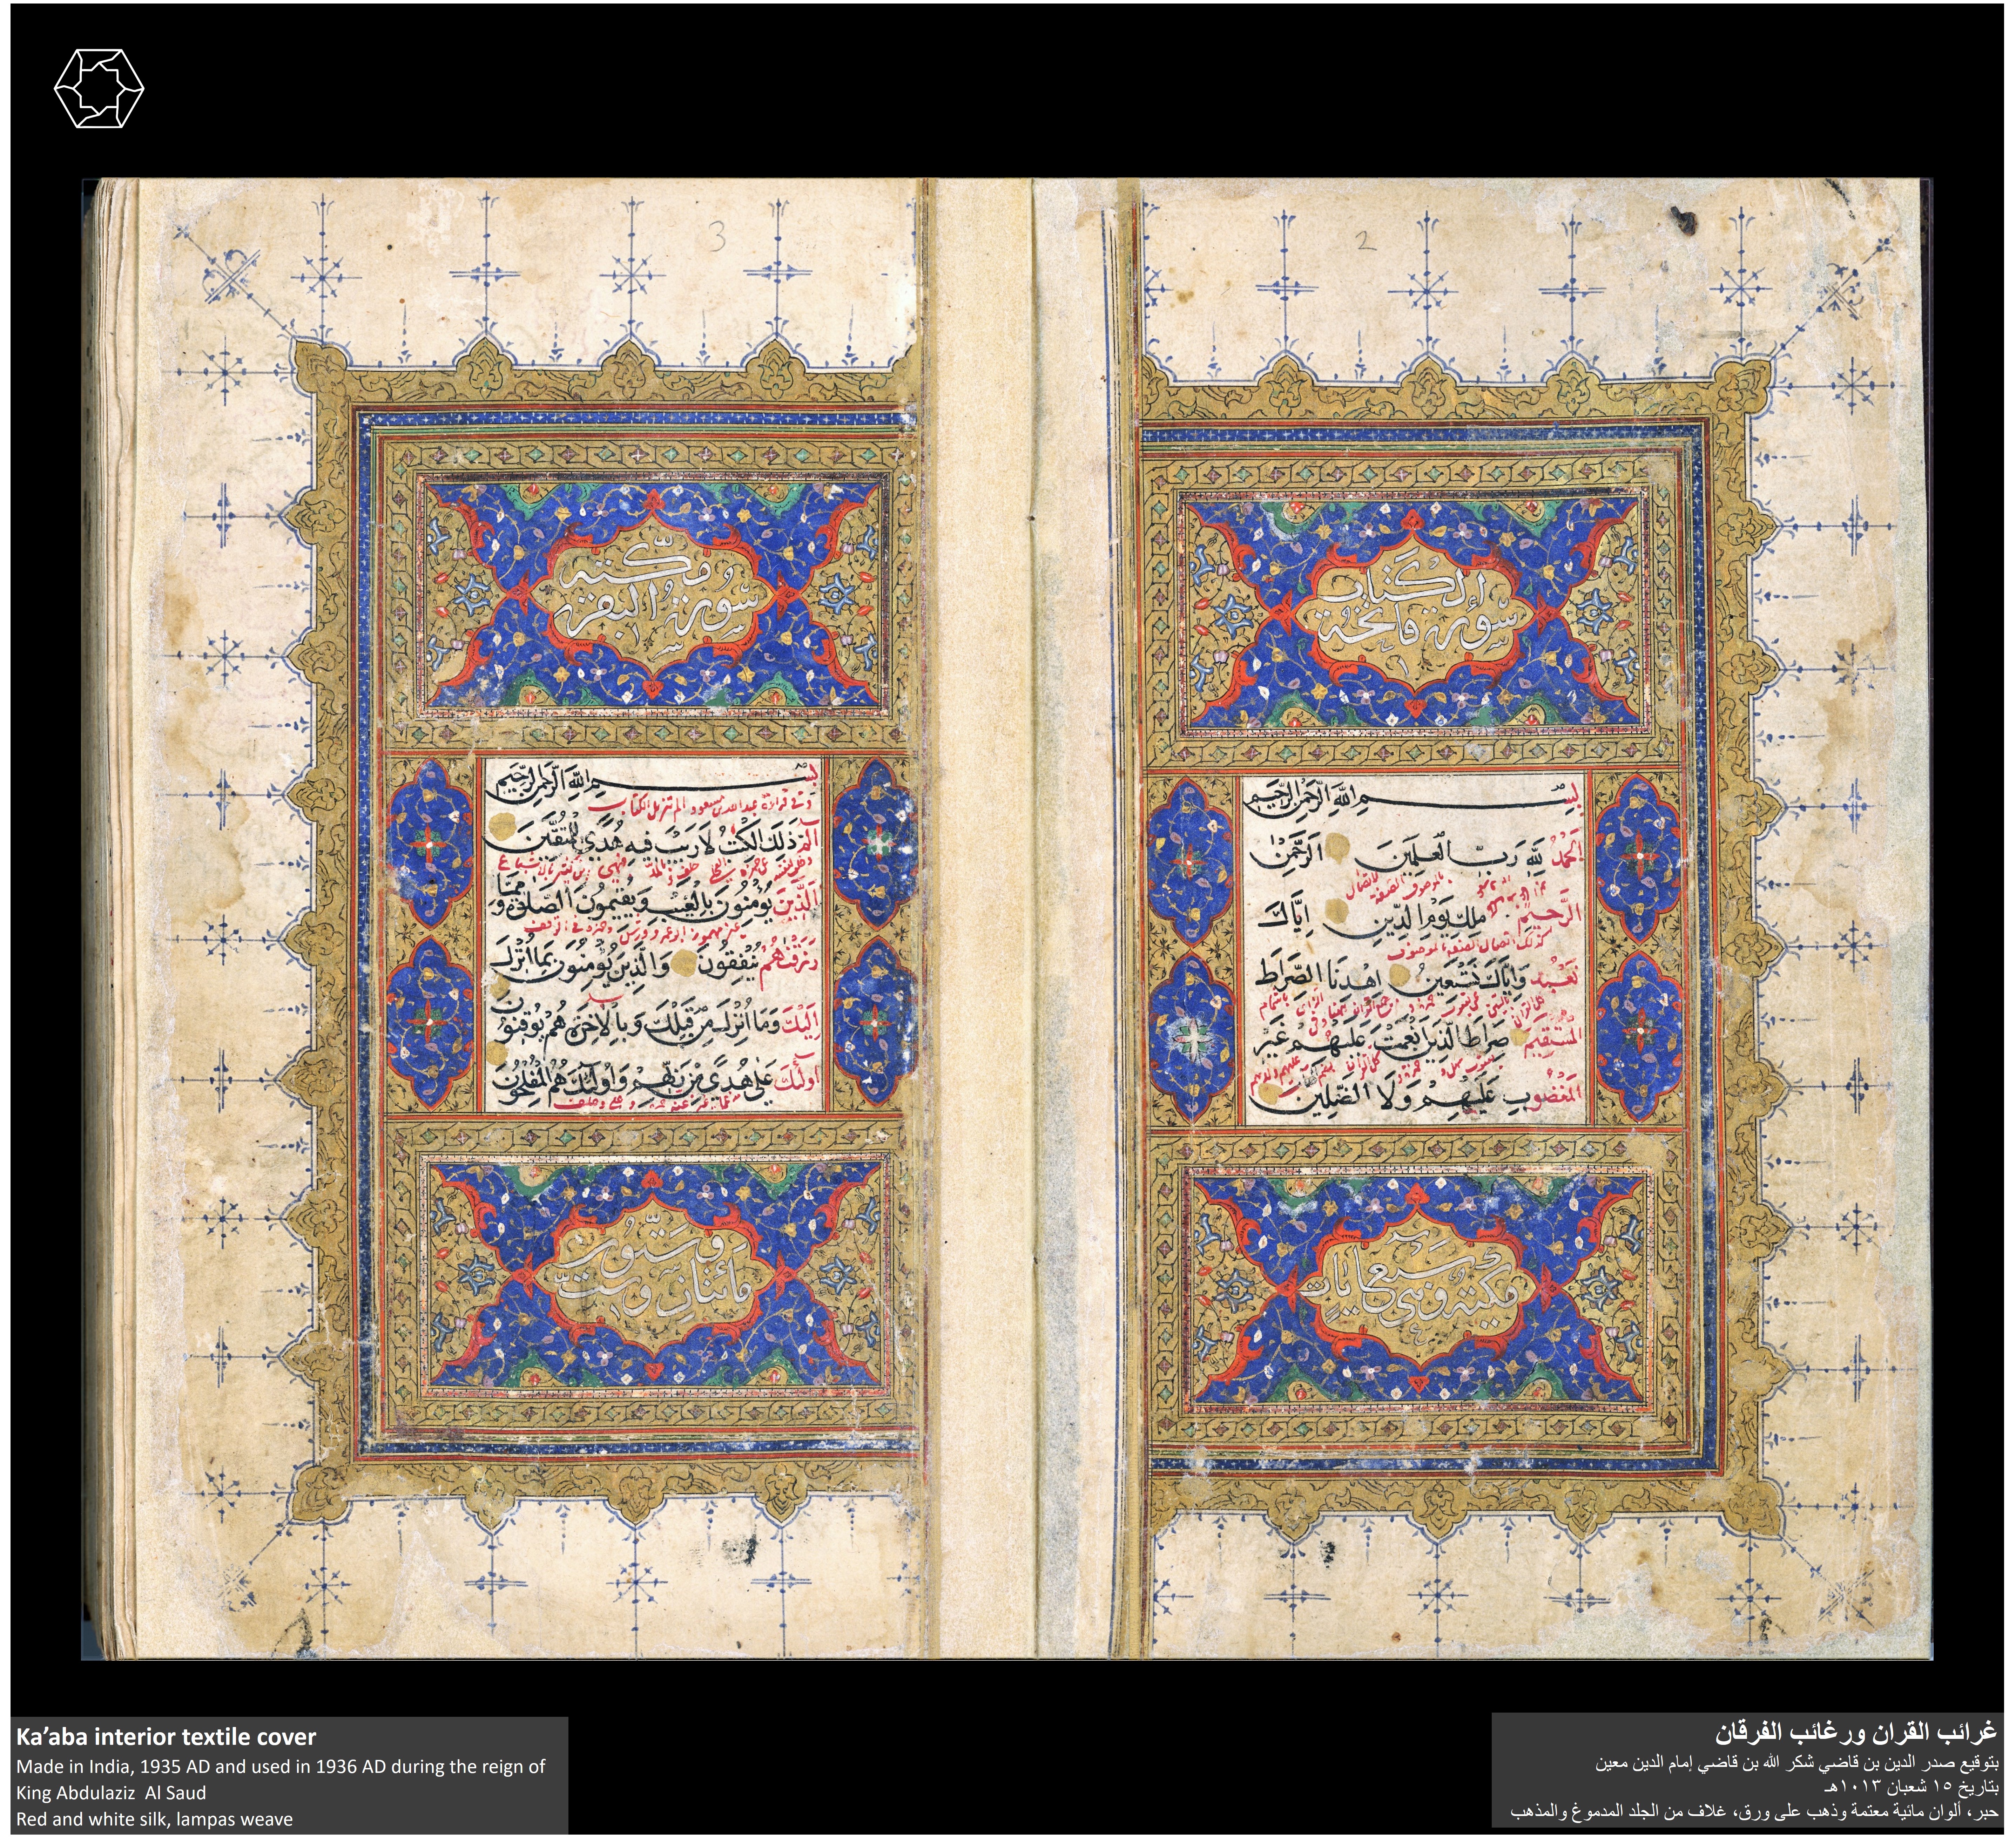 3
2
سورة فاتحة
الكتاب
بسم الله الرحمن الرحيم
الحمد لله رب العلمين الرحمن
الرحيم ملك يوم الدين اياك
نعبد واياك نستعين اهدنا الصراط
المستقيم صراط الذين انعمت عليهم غير
المغضوب عليهم ولا الضالين
مكية وهى سبع ايات
سورة البقرة
بسم الله الرحمن الرحيم
الم ذلك الكتب لا ريب فيه هدى للمتقين
الذين يؤمنون بالغيب ويقيمون الصلوة ومما
رزقنهم ينفقون والذين يؤمنون بما انزل
اليك وما انزل من قبلك وبالاخرة هم يوقنون
اولئك على هدى من ربهم واولئك هم المفلحون
مائتان وست
وثمانون
Ka’aba interior textile cover
Made in India, 1935 AD and used in 1936 AD during the reign of
King Abdulaziz Al Saud
Red and white silk, lampas weave
غرائب القران ورغائب الفرقان
بتوقيع صدر الدين بن قاضي شكر الله بن قاضي إمام الدين معين
بتاريخ ١٥ شعبان ١٠١٣هـ
حبر، ألوان مائية معتمة وذهب على ورق، غلاف من الجلد المدموغ والمذهب